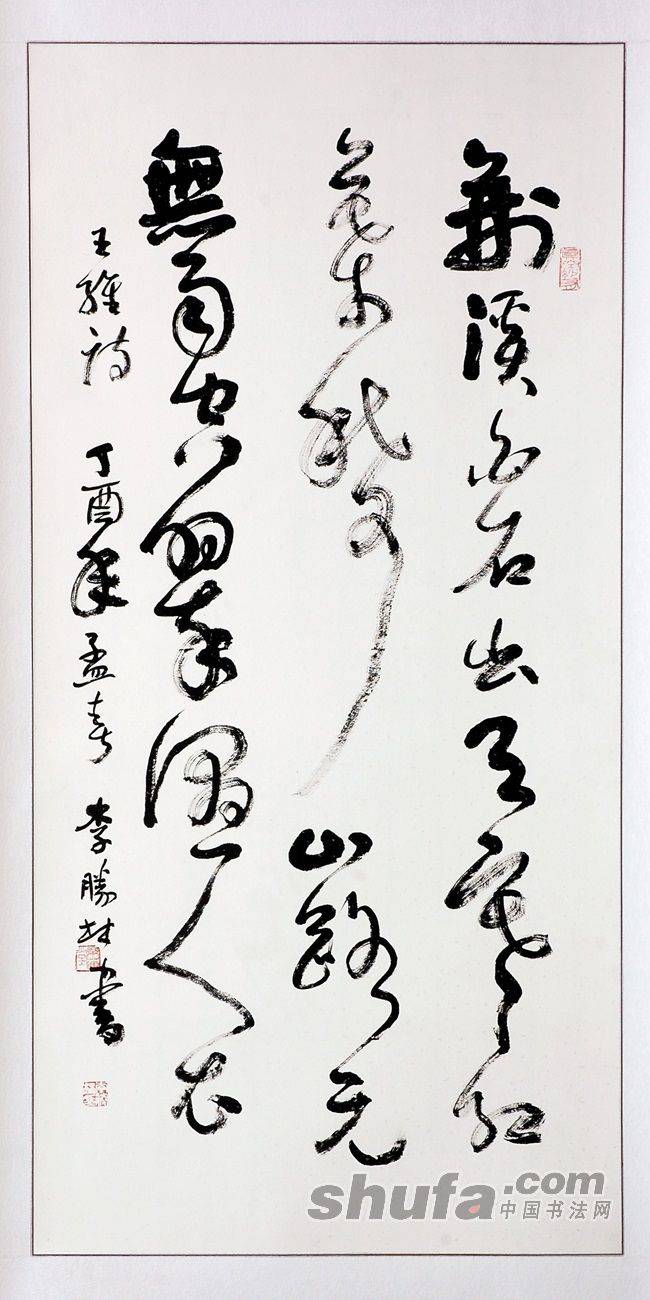 荆溪白石出天寒红
葉稀山路元
無雨空翠濕人衣
王維詩 丁酉年孟春 李勝林書
shufa.com
中国书法网